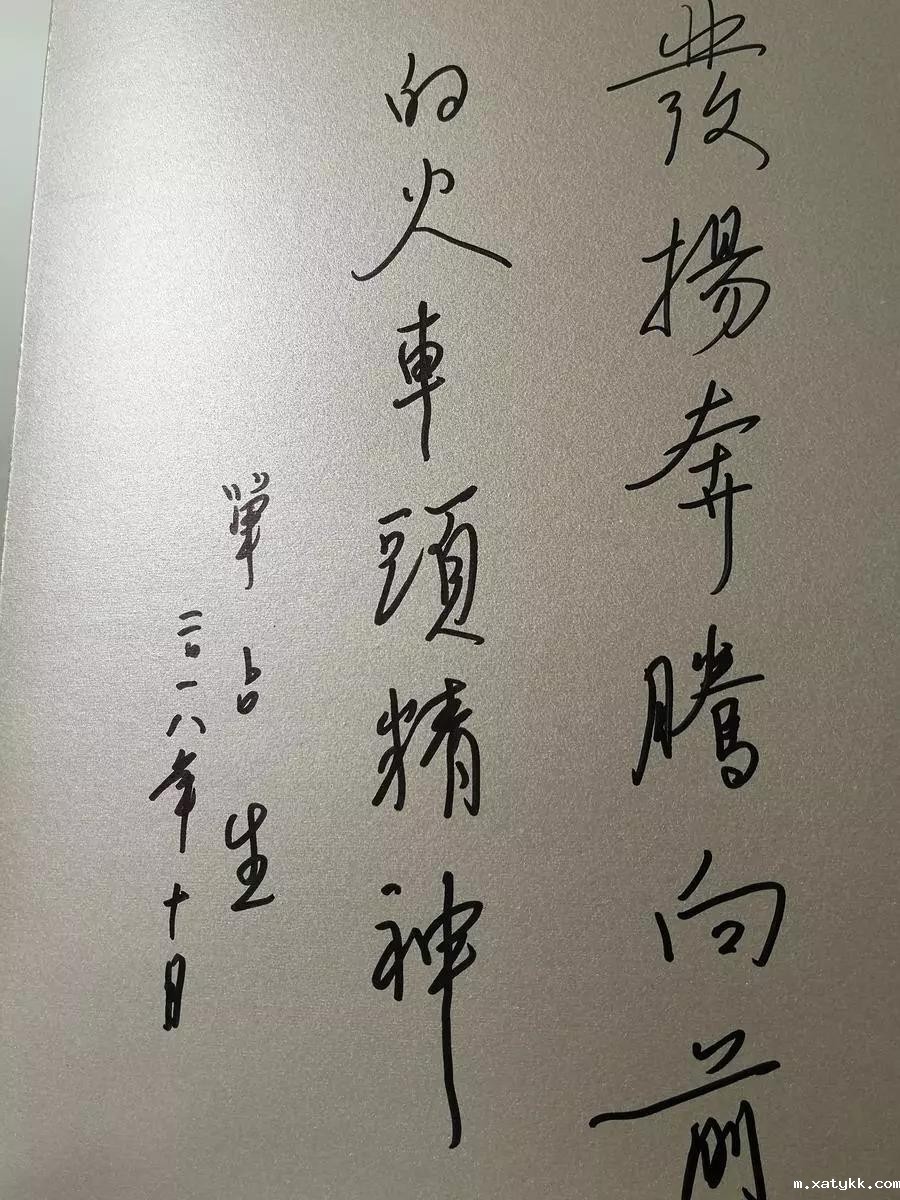 發揚奔騰向前
的火車頭精神
單占生
二〇一八年十月
m.xatykk.com